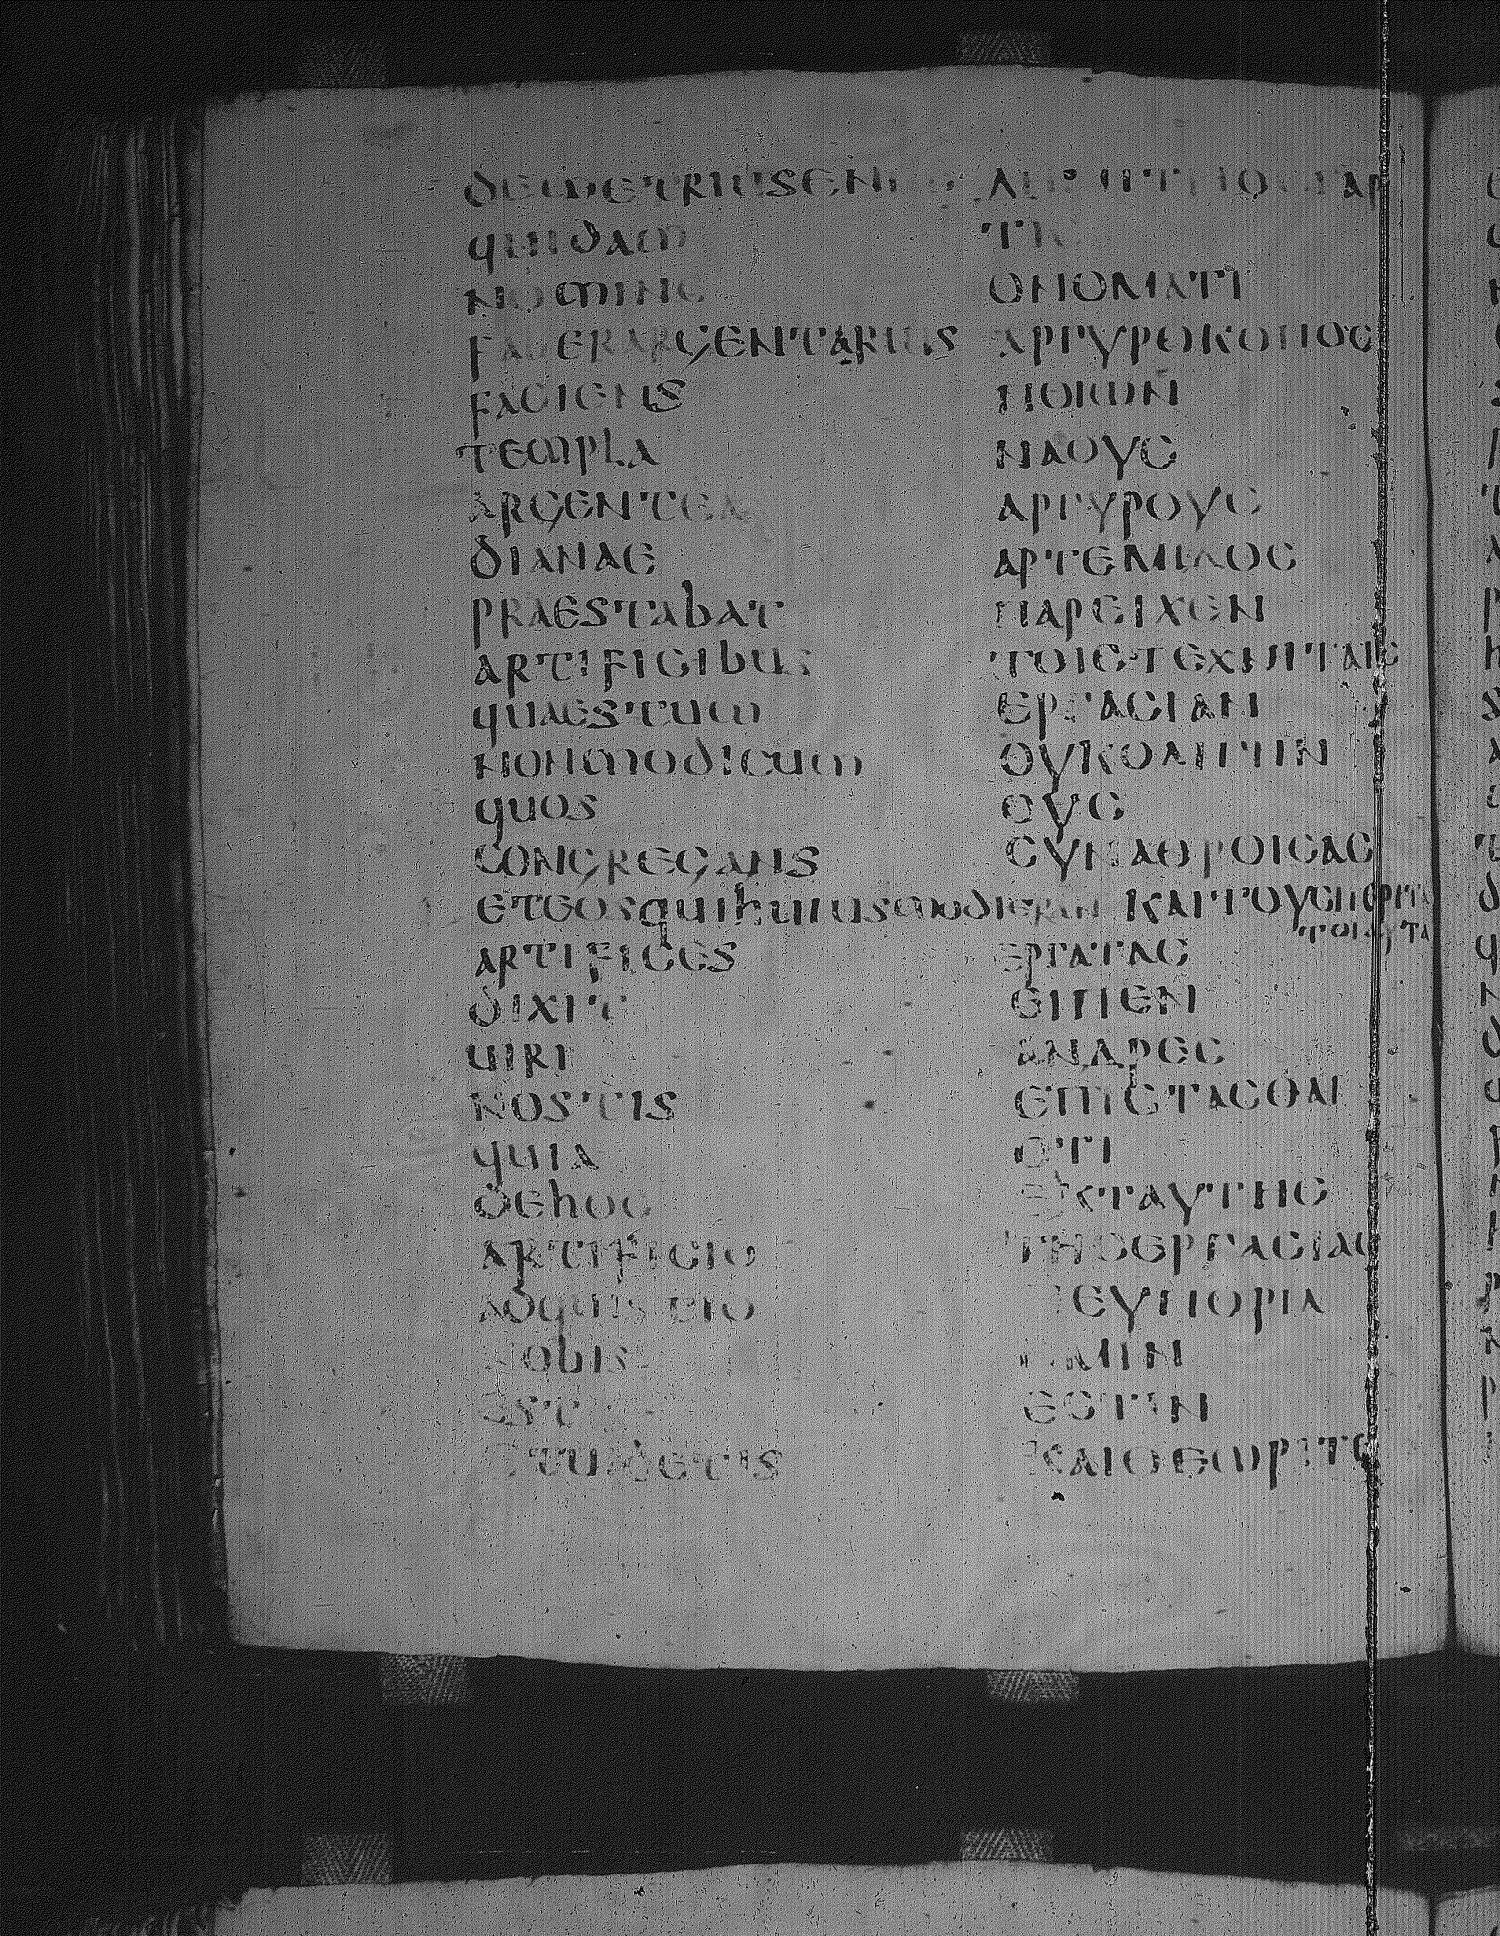 demetriusenim ΔΗΜΗΤΡΙΟΣΓΑΡ
quidam ΤΙϹ
nomine ΟΝΟΜΑΤΙ
faberargentarius ΑΡΓΥΡΟΚΟΠΟϹ
faciens ΠΟΙΩΝ
templa ΝΑΟΥϹ
argentea ΑΡΓΥΡΟΥϹ
dianae ΑΡΤΕΜΙΔΟϹ
praestabat ΠΑΡΕΙΧΕΝ
artificibus ΤΟΙϹΤΕΧΝΙΤΑΙϹ
quaestum ΕΡΓΑϹΙΑΝ
nonmodicum ΟΥΚΟΛΙΓΗΝ
quos ΟΥϹ
congregans ϹΥΝΑΘΡΟΙϹΑϹ
eteosquihuiusmodierant ΚΑΙΤΟΥϹΠΕΡΙΤΑ
ΤΟΙΑΥΤΑ
artifices ΕΡΓΑΤΑϹ
dixit ΕΙΠΕΝ
uiri ΑΝΔΡΕϹ
nostis ΕΠΙϹΤΑϹΘΑΙ
quia ΟΤΙ
dehoc ΕΚΤΑΥΤΗϹ
artificio ΤΗϹΕΡΓΑϹΙΑϹ
adquisitio ΕΥΠΟΡΙΑ
nobis ΗΜΙΝ
est ΕϹΤΙΝ
etuidetis ΚΑΙΘΕΩΡΙΤΕ